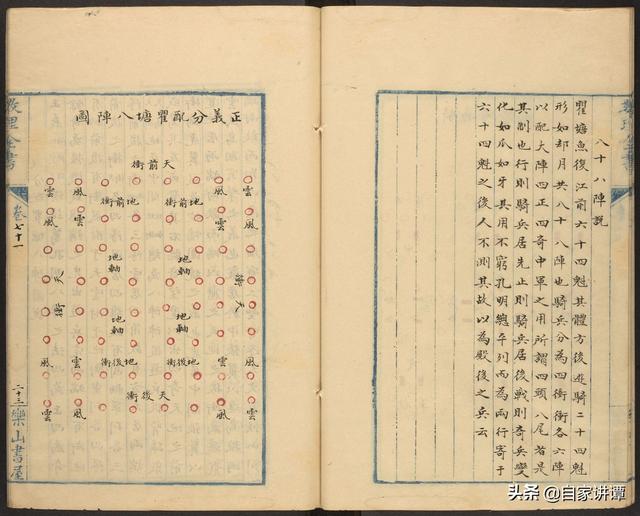 八十八陣說
瞿塘魚復江前六十四魁其體方後遊騎二十四魁
形如却月共八十八陣也騎兵分為四衝衝各六陣
以配大陣四正四奇中軍之用所謂四頭八尾者是
其制也行則騎兵居先止則騎兵居後戰則奇兵變
化如瓜如牙其用不窮孔明總平列而為兩行寄于
六十四魁之後人不測其故以為殿後之兵云
正義分配瞿塘八陣圖
天前衝
雲 風 雲 風
風 雲 地前衝 地前衝 風 雲
地軸 地軸
天衝 天衝
地軸 地軸
風 雲 地後衝 地後衝 雲 風
天後衝
雲 風 風 雲
數理全書
卷七十一
二十三
樂山書屋
头条 @自家讲谭